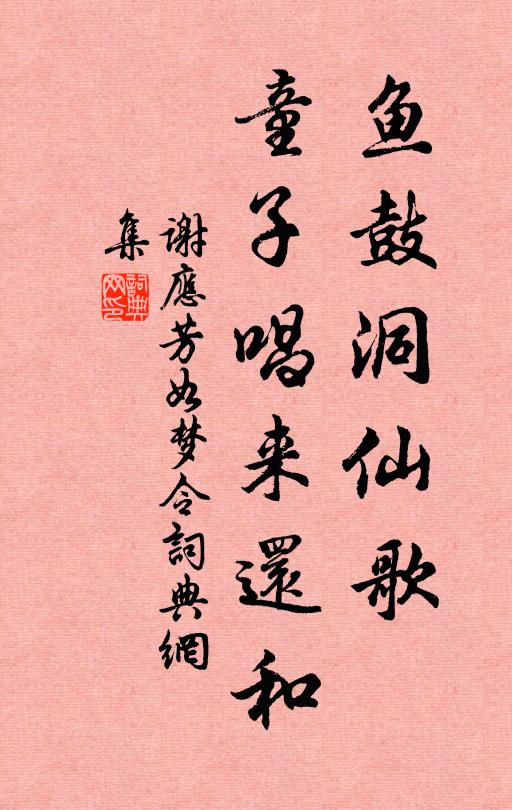 鱼鼓洞仙歌
童子唱来還和
謝應芳如梦令詞典網
集
詞典
网印